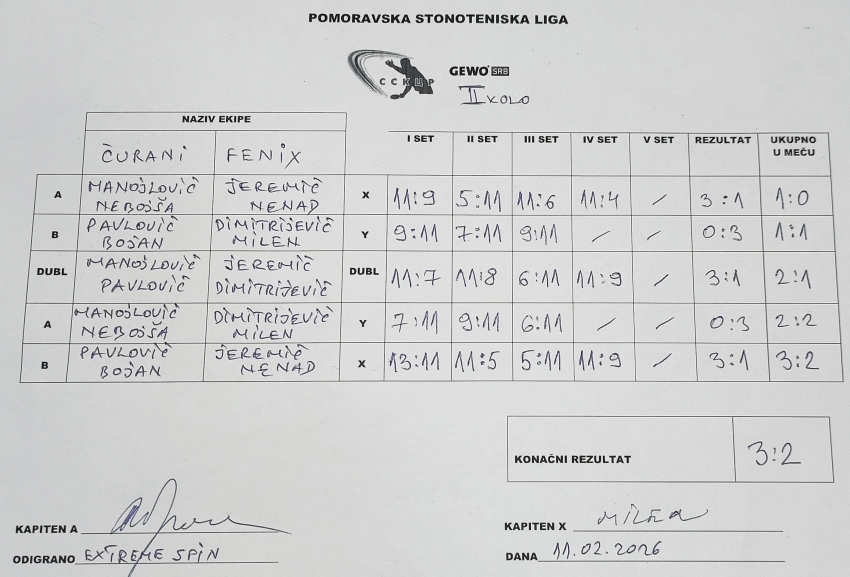 POMORAVSKA STONOTENISKA LIGA
ССКЦР
GEWO SRB
II KOLO
NAZIV EKIPE
ČURANI FENIX I SET II SET III SET IV SET V SET REZULTAT UKUPNO U MEČU
A MANOJLOVIČ NEBOJŠA JEREMIČ NENAD X 11:9 5:11 11:6 11:4 / 3:1 1:0
B PAVLOVIČ BOJAN DIMITRIJEVIČ MILEN Y 9:11 7:11 9:11 / / 0:3 1:1
DUBL MANOJLOVIČ PAVLOVIČ JEREMIČ DIMITRIJEVIČ DUBL 11:7 11:8 6:11 11:9 / 3:1 2:1
A MANOJLOVIČ NEBOJŠA DIMITRIJEVIČ MILEN Y 7:11 9:11 6:11 / / 0:3 2:2
B PAVLOVIČ BOJAN JEREMIČ NENAD X 13:11 11:5 5:11 11:9 / 3:1 3:2
KONAČNI REZULTAT 3:2
KAPITEN A
KAPITEN X MILEN
ODIGRANO EXTREME SPIN
DANA 11.02.2026